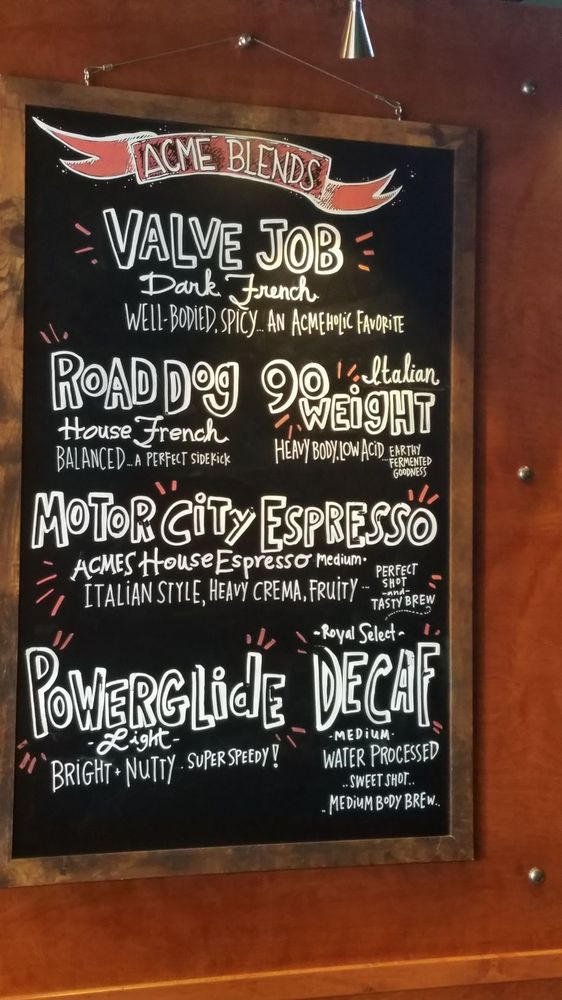 ACME BLENDS
VALVE JOB
Dark French
WELL-BODIED, SPICY... AN ACMEHOLIC FAVORITE
ROAD DOg
House French
BALANCED... A PERFECT SIDEKICK
90 WEiGHT
Italian
HEAVY BODY, LOW ACID...
EARTHY
FERMENTED
GOODNESS
MOTOR CiTy ESPRESSO
ACMES House Espresso medium.
ITALIAN STYLE, HEAVY CREMA, FRUITY...
PERFECT
SHOT
-and-
TASTY BREW
POWERGLidE
-Light-
BRIGHT + NUTTY. SUPER SPEEDY!
~Royal Select~
DECAF
-MEDIUM-
WATER PROCESSED
..SWEET SHOT..
..MEDIUM BODY BREW..